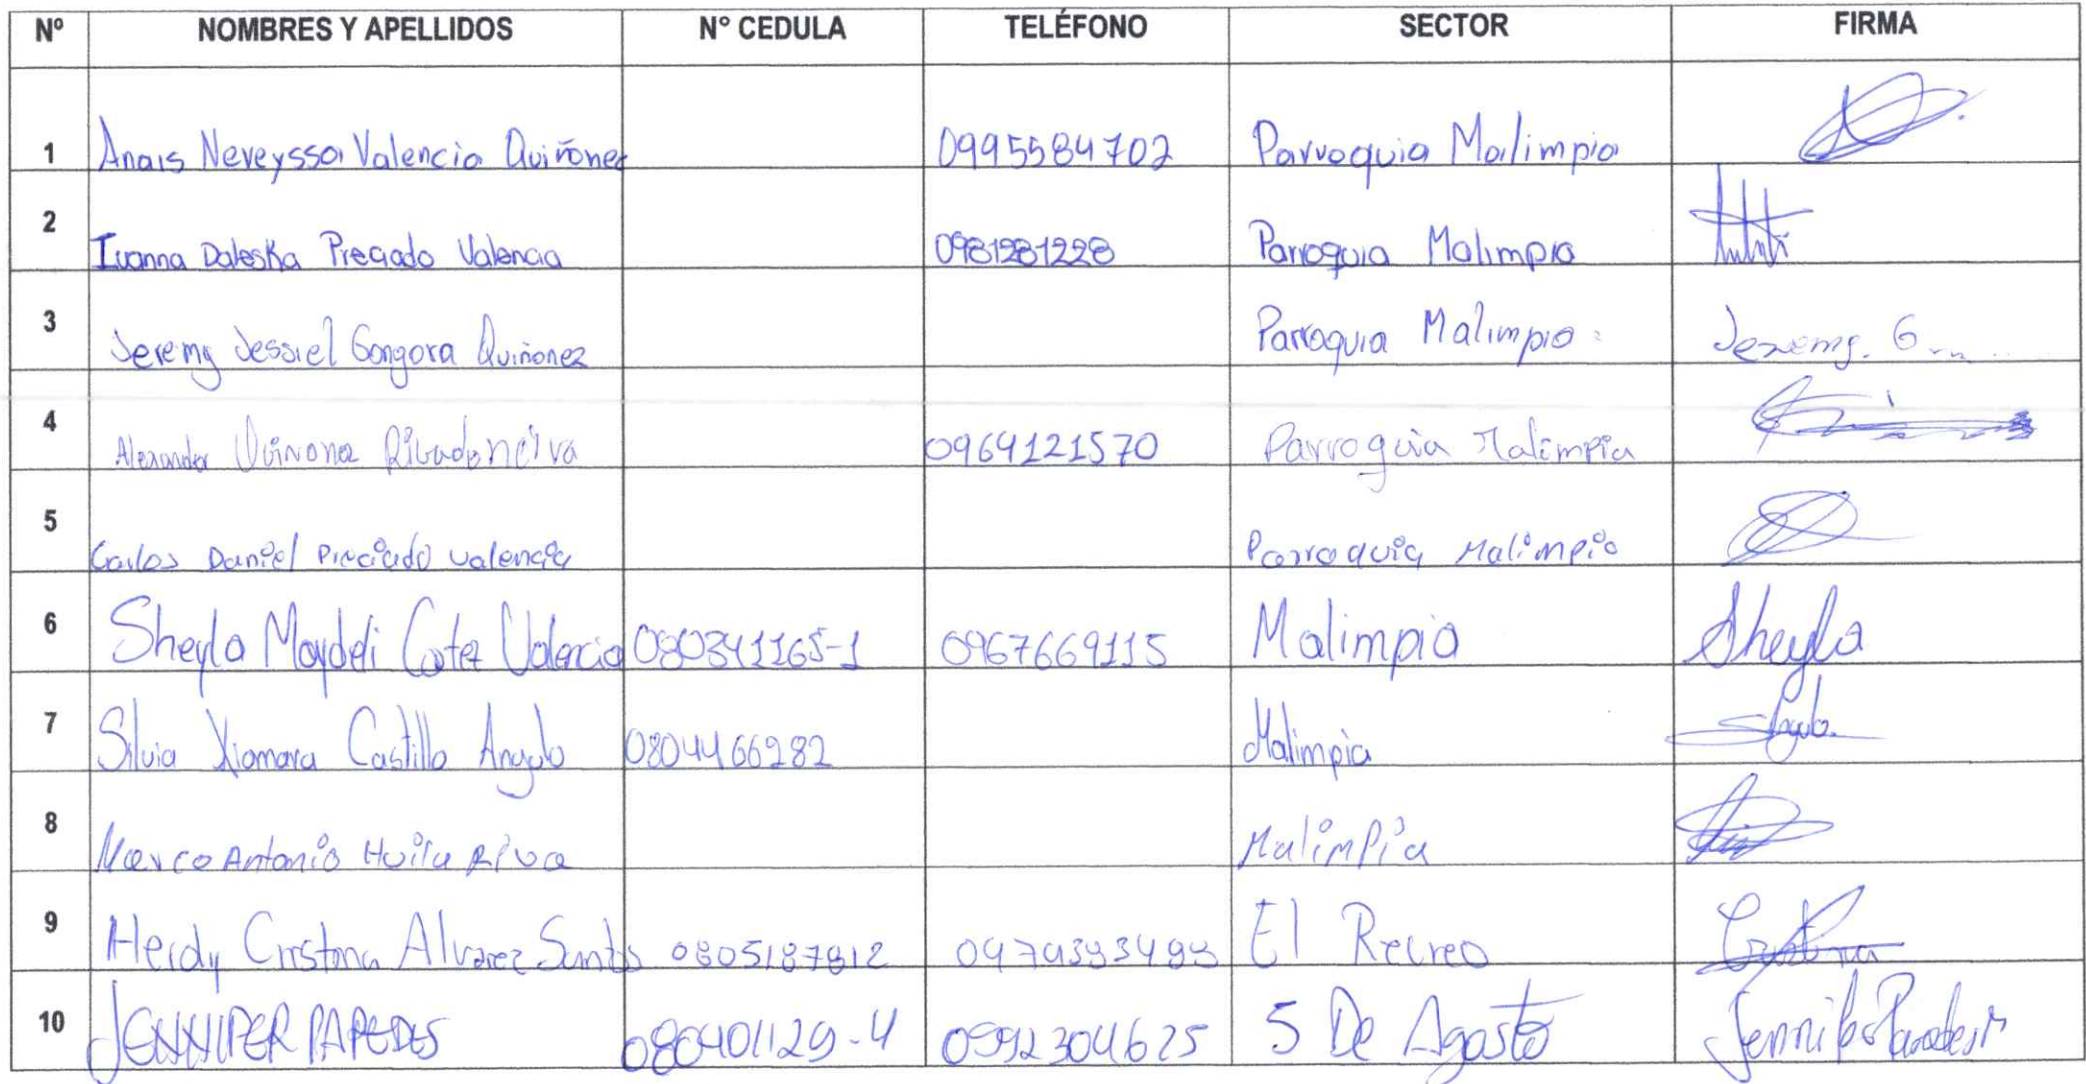 Nº NOMBRES Y APELLIDOS N° CEDULA TELÉFONO SECTOR FIRMA
1 Anais Neveyssa Valencia Quiñonez 0995584702 Parroquia Malimpia
2 Ivanna Daleska Preciado Valencia 0981281228 Parroquia Malimpia
3 Jeremy Jessiel Gongora Quiñonez Parroquia Malimpia Jeremy. G
4 Alexander Quinonez Ribadeneira 0969121570 Parroquia Malimpia
5 Carlos Daniel Preciado Valencia Parroquia Malimpia
6 Sheyla Maydeli Cortez Valencia 080341165-1 0967669115 Malimpia Sheyla
7 Silvia Xiomara Castillo Angulo 0804466282 Malimpia
8 Marco Antonio Huila Riva Malimpia
9 Heidy Cristina Alvarez Santos 0805187812 El Recreo Cristina
10 JENNIFER PAREDES 080401129-4 0992304625 5 De Agosto Jennifer Paredes